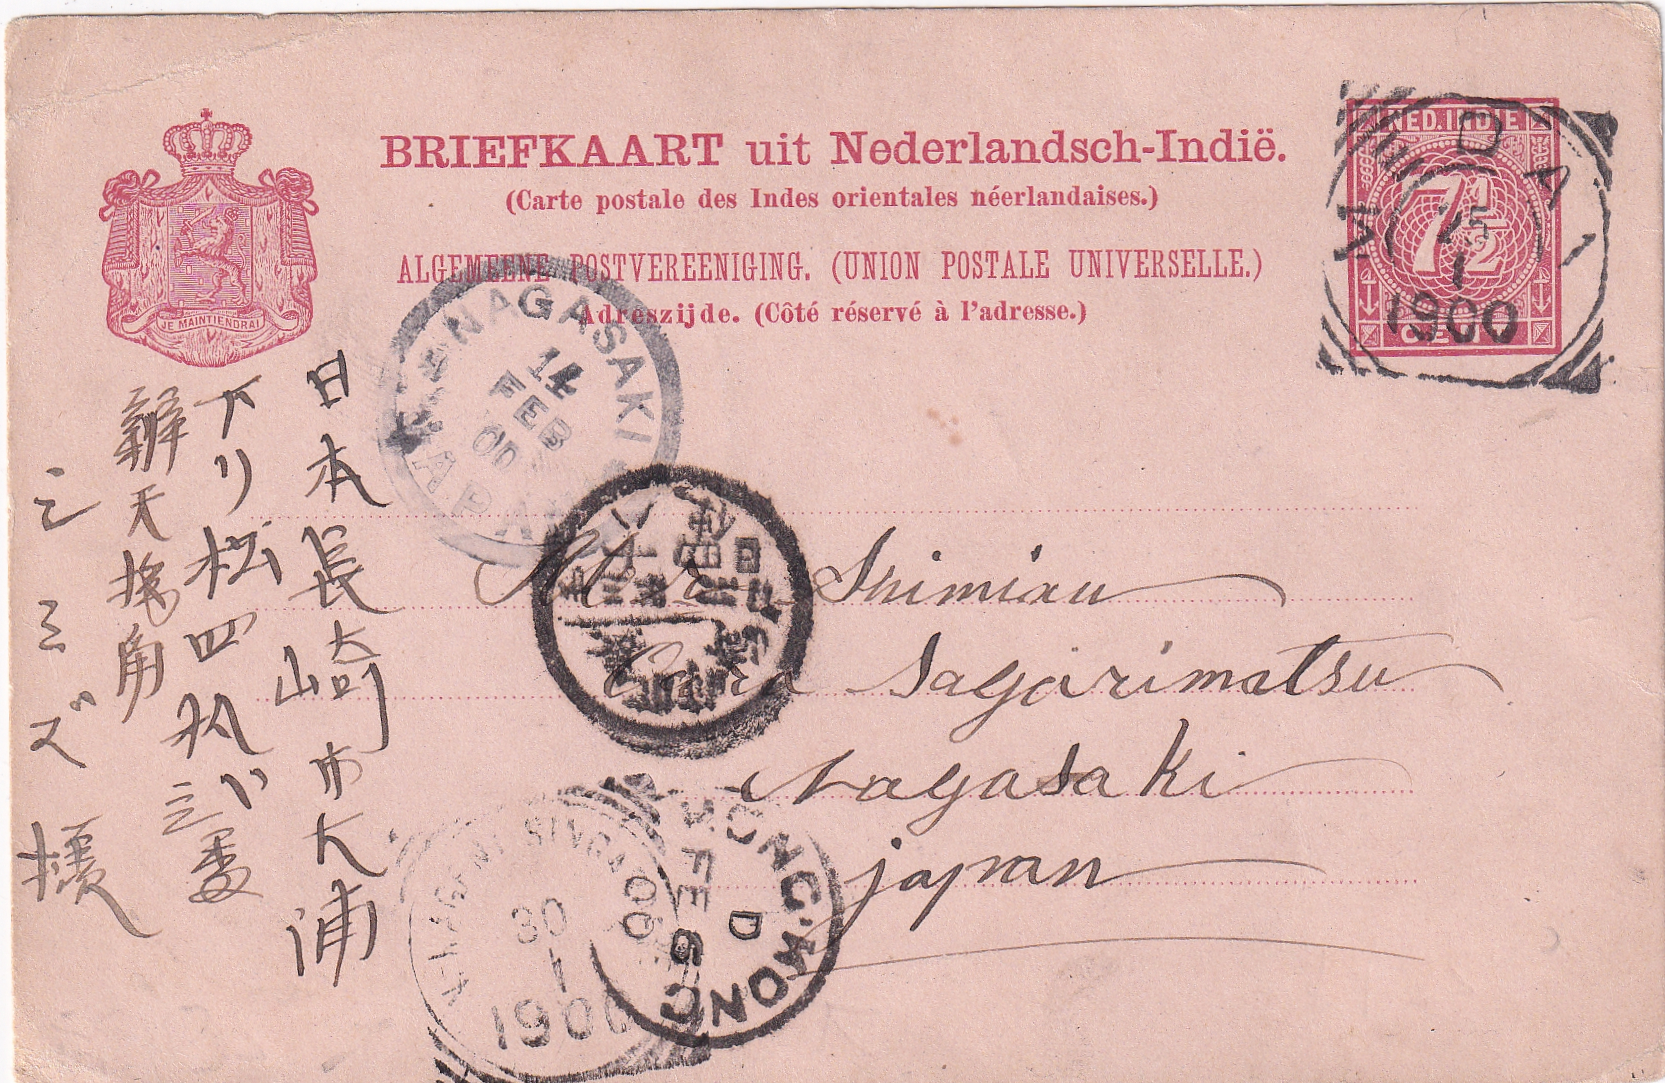 BRIEFKAART uit Nederlandsch-Indië.
(Carte postale des Indes orientales néerlandaises.)
ALGEMEENE POSTVEREENIGING. (UNION POSTALE UNIVERSELLE.)
Adreszijde. (Côté réservé à l'adresse.)
JE MAINTIENDRAI
NED. INDIE
7½
CENT
25
1
1900
NAGASAKI
14
FEB
00
JAPAN
Shimizu
Sagarimatsu
Nagasaki
Japan
日本長崎市大浦
下リ松四拾三番
辨天 角
シミズ様
N-I-AGENT SINGAPORE
30
1
1900
HONG-KONG
D
FE 6